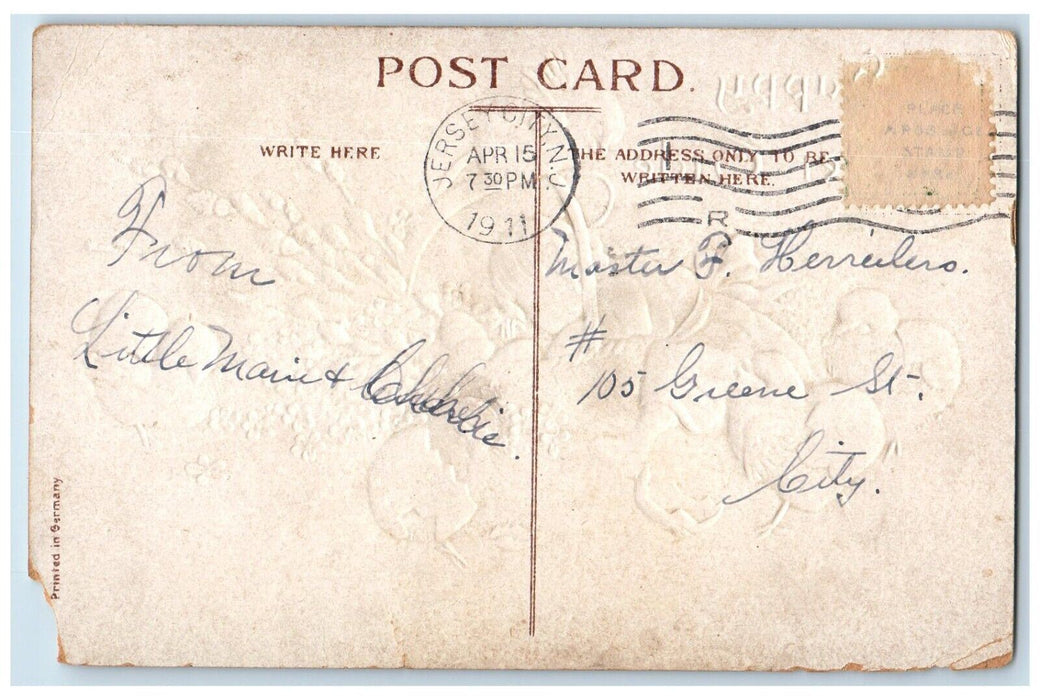 POST CARD.
WRITE HERE
THE ADDRESS ONLY TO BE
WRITTEN HERE.
JERSEY CITY, N.J.
APR 15
7 30 PM
1911
R
PLACE
STAMP
Happy
From
Little Marie &
Master F.
# 105 Greene St.
City.
Printed in Germany